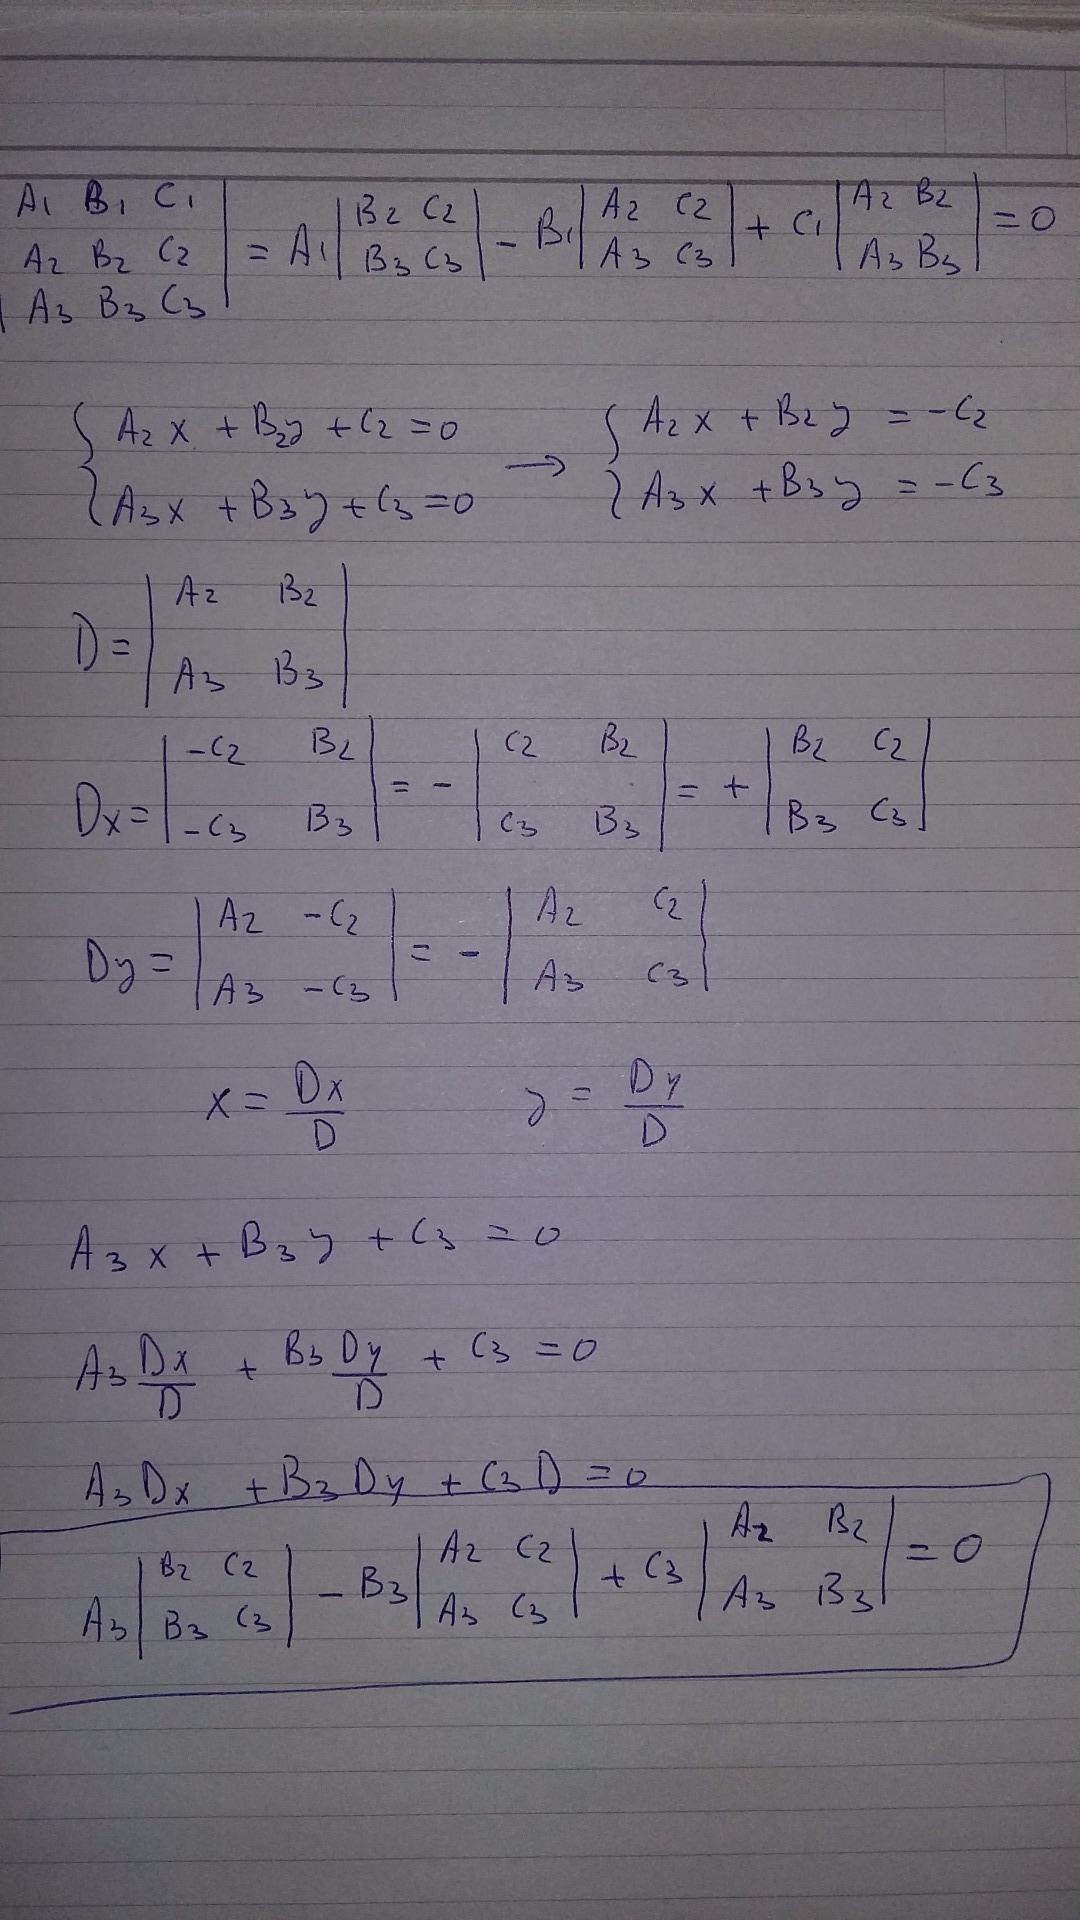 | A1 B1 C1 |
| A2 B2 C2 | = A1 | B2 C2 ; B3 C3 | - B1 | A2 C2 ; A3 C3 | + C1 | A2 B2 ; A3 B3 | = 0
| A3 B3 C3 |
{ A2 x + B2y + C2 = 0 → { A2 x + B2 y = -C2
{ A3 x + B3 y + C3 = 0 { A3 x + B3 y = -C3
D = | A2 B2 ; A3 B3 |
Dx = | -C2 B2 ; -C3 B3 | = - | C2 B2 ; C3 B3 | = + | B2 C2 ; B3 C3 |
Dy = | A2 -C2 ; A3 -C3 | = - | A2 C2 ; A3 C3 |
x = Dx/D y = Dy/D
A3 x + B3 y + C3 = 0
A3 Dx/D + B3 Dy/D + C3 = 0
A3 Dx + B3 Dy + C3 D = 0
A3 | B2 C2 ; B3 C3 | - B3 | A2 C2 ; A3 C3 | + C3 | A2 B2 ; A3 B3 | = 0